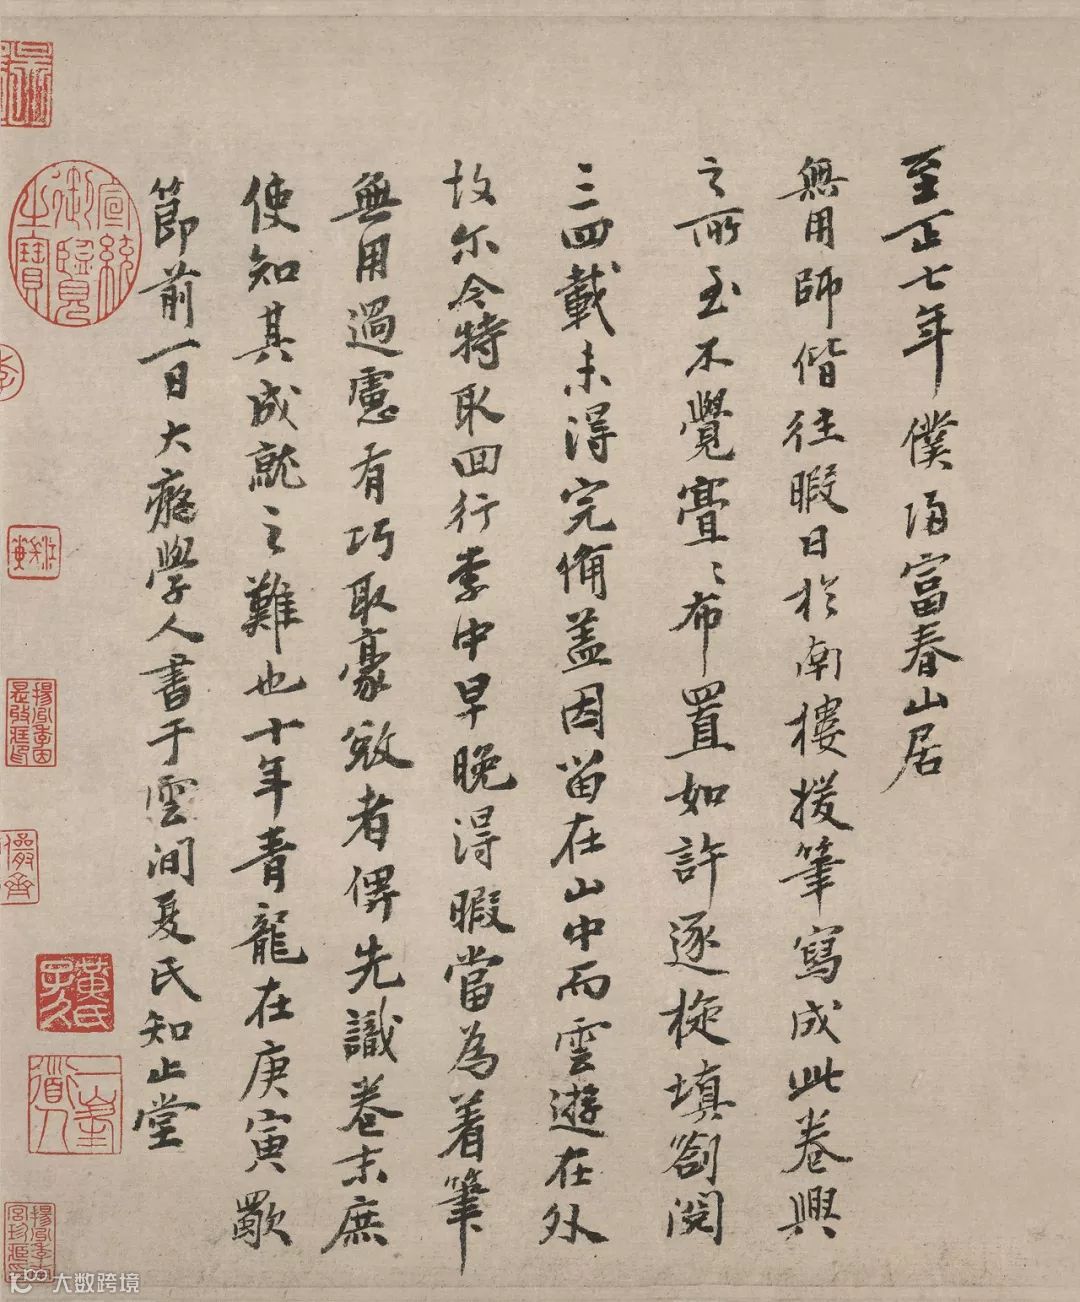 至正七年僕歸富春山居
無用師偕往暇日於南樓援筆寫成此卷興
之所至不覺亹〻布置如許逐旋填劄閱
三四載未得完備盖因留在山中而雲遊在外
故尔今特取回行李中早晚得暇當為着筆
無用過慮有巧取豪敚者俾先識卷末庶
使知其成就之難也十年青龍在庚寅歜
節前一日大癡學人書于雲間夏氏知止堂
宣統御覽之寶
黃氏子久
一峯道人
大数跨境